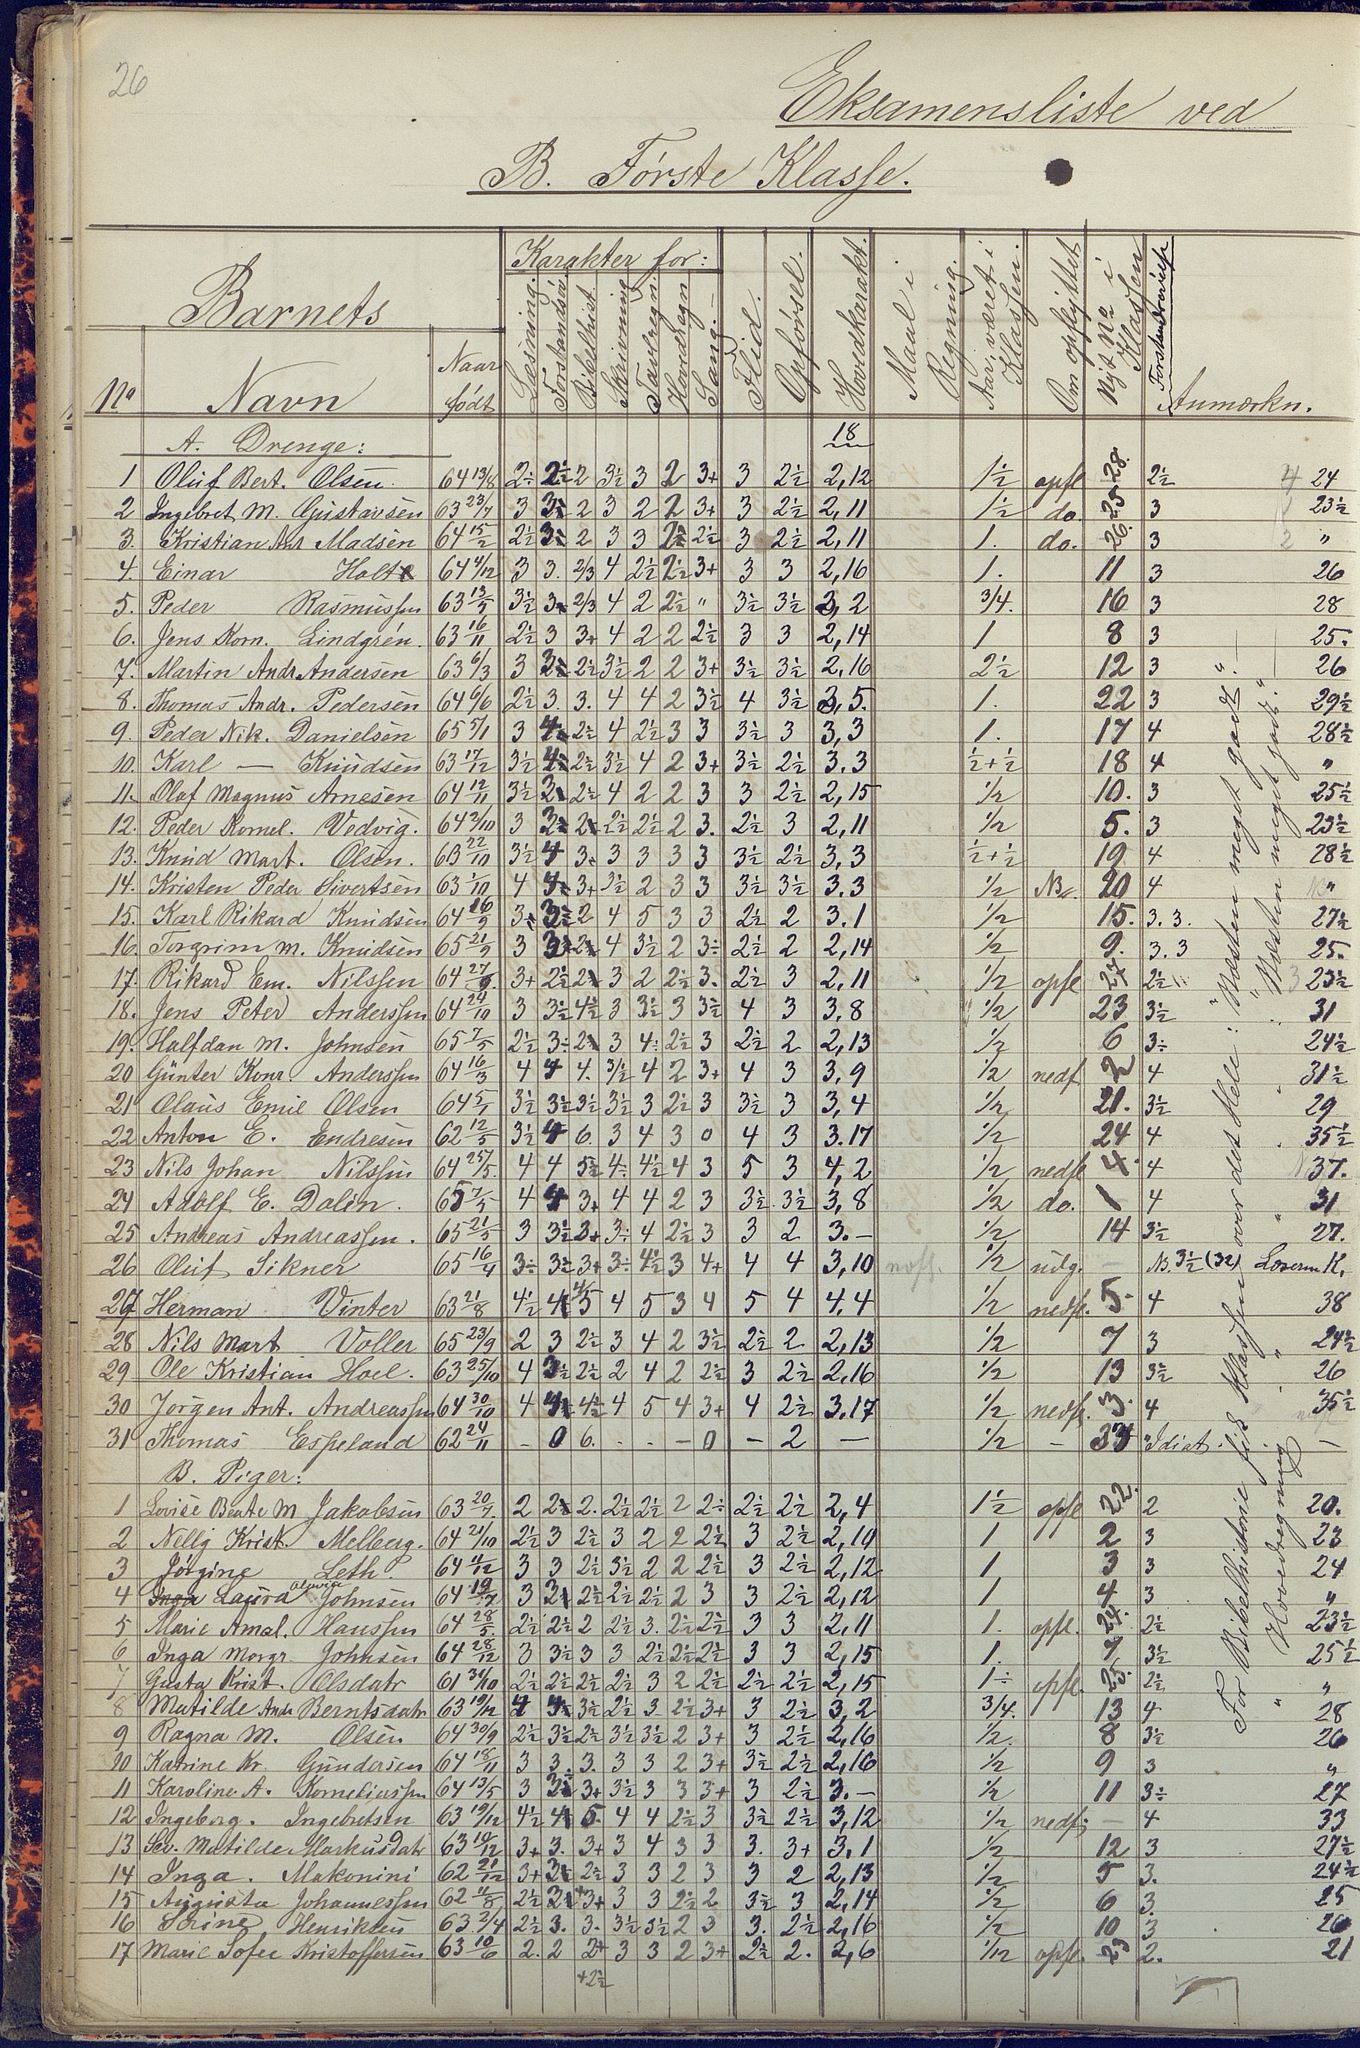 26
Eksamensliste ved
B. Første Klasse.
Barnets
Karakter for:
No Navn Naar født Læsning. Forstandsø. Bibelhist. Skrivning Tavlregn. Hovedregn Sang. Flid. Opførsel. Hovedkarakt. Maal i Regning. Aar, været i Klassen. Om opflyttet Nyt No i Klassen Anmærkn.
A. Drenge: 18
1 Oluf Bert. Olsen 64 13/8 2÷ 2½ 2 3½ 3 2 3+ 3 2½ 2,12 1½ opfl. 28. 2½ 4 24
2 Ingebret M. Gustavsen 63 23/7 3 3 2 3 2 2 3+ 3 2½ 2,11 1½ do. 25 3 23½
3. Kristian And. Madsen 64 15/2 2½ 3 2 3 3 2 2½ 3 2½ 2,11 1. do. 26. 3 2 "
4. Einar Holt 64 4/12 3 3. 2/3 4 2½ 2½ 3+ 3 3 2,16 1. 11 3 26
5. Peder Rasmussen 63 13/5 3½ 3 2/3 4 2 2½ " 3½ 3½ 3,2 3/4. 16 3 28
6. Jens Korn. Lindgrén. 63 16/11 2½ 3 3+ 4 2 2 2½ 3 3 2,14 1 8 3 25.
7. Martin Andr. Andersen 63 6/3 3 3 2½ 3½ 2 2 3+ 3½ 3½ 2,16 2½ 12 3 26
8. Thomas Andr. Pedersen 64 6/6 2½ 3. 3. 4 4 2 3½ 4 3½ 3,5. 1. 22 3 29½
9. Peder Nik. Danielsen 65 5/1 3 4 2½ 4 2½ 3 3 3½ 3 3,3 1. 17 4 28½
10. Karl — Knudsen 63 17/12 3½ 4 2½ 3½ 4 2 3+ 3½ 2½ 3.3 ½+½ 18 4 "
11. Olaf Magnus Arnesen 64 12/11 3½ 3 2½ 4 2 2 3 3 2½ 2,15 1/2 10. 3 25½
12. Peder Kornel. Vedvig. 64 2/10 3 3 2 2½ 2½ 2 3. 2½ 3 2,11 1/2 5. 3 23½
13. Knud Mart. Olsen. 63 22/10 3½ 4 3. 3 3 3 3 3½ 2½ 3,3 ½+½ 19 4 28½
14. Kristen Peder Sivertsen 63 1/10 4 4 3+ 3½ 2 3 3 3½ 3½ 3.3 1/2 No. 20 4 "
15. Karl Rikard Knudsen 64 16/9 3 3 2 4 5 3 3 2½ 2 3.1 1/2 15. 3. 3. 27½
16. Torgrim M. Knudsen 65 21/9 3 3 2 4 3½ 2 3÷ 2½ 2 2,14 1/2 9. 3. 3 25.
17. Rikard Em. Nilssen 64 27/9 3+ 2½ 2 3 2 2½ 3. 2½ 3 2,11 1/2 opfl 27 2½ 3 23½
18. Jens Peter Anderssen 64 24/10 3 3½ 4½ 3 3½ 3 3½ 4 3 3,8 1/2 23 3½ 31
19. Halfdan M. Johnsen 65 7/5 2½ 3÷ 2 3 4÷ 2½ 3 2½ 2 2,13 1/2 6 3÷ 24½
20 Günter Konr. Anderssen 64 16/3 4 4 4. 3½ 4 2 3+ 4 3 3,9 1/2 nedf 2 4 31½
21 Olaus Emil Olsen 64 5/1 3½ 3½ 3½ 3½ 3 2½ 3 3½ 3 3,4 1/2 21. 3½ 29
22 Anton E. Endresen 62 12/5 3½ 4 6. 3 4 3 0 4 3 3.17 1/2 24 4 35½
23 Nils Johan Nilssen 64 25/5. 4 4 5½ 4÷ 4½ 4 3 5 3 4,2 1/2 nedfl 4 4 37.
24 Adolf E. Dalén. 65 7/5 4 4 3+ 4 4 2 3 3½ 3½ 3,8 1/2 do. 1 4 31
25 Andreas Andreassen. 65 21/5 3 3½ 3+ 3÷ 4 2½ 3 3 2 3.— 1/2 14 3½ 27.
26 Oluf Sikner 65 16/4 3÷ 3½ 3+ 3÷ 4½ 3 4+ 4 4 3,10 1/2 udg. — No. 3½ (32)
27 Herman Vinter 63 21/8 4½ 4 5 4 5 3 4 5 4 4.4 1/2 nedfl. 5 4 38
28 Nils Mart Voller 65 23/9 2 3 2½ 3 4 2 3½ 2½ 2 2,13 1/2 7 3 24½
29 Ole Kristian Hoel. 63 25/10 4 3½ 2½ 2 4 2 2½ 3 2½ 2,16 1/2 13 3½ 26
30 Jørgen Ant. Andreassen 64 30/10 4 4 4½ 4 5 4 3+ 4 2½ 3.17 1/2 nedfl. 3. 4 35½
31 Thomas Espeland 62 24/11 - 0 6. - - - 0 - 2 — 1/2 — Idiot. —
B. Piger:
1 Lovise Beate M. Jakobsen 63 20/7. 2 2 2. 2½ 2½ 2 2÷ 2½ 2½ 2,4 1½ opfl 22. 2 20.
2 Nelly Krist. Melberg. 64 21/10 2½ 3 2½ 3 2 2 2½ 3 2½ 2,10 1 2 3 23
3 Jørgine Leth. 64 11/12 3 3 2½ 3½ 2 2 2½ 3 2½ 2,12 1 3 3 24
4 Inga Laura Oluvia Johnsen 64 19/7 3 3 2½ 2½ 2½ 2 3 3 2½ 2,12 1 4 3 "
5 Marie Amal. Hanssen 64 28/5. 2½ 2½ 2 2½ 3. 2½ 2½ 3 3 2,11 1. opfl. 24. 2½ 23½
6 Inga Margr. Johnsen 64 28/12 3 3½ 3 3 2½ 2½ 2½ 3 3 2,15 1. 7 3½ 25½
7 Gusta Krist. Olsdatr 61 31/10 2½ 2½ 2½ 2½ 3 2 2½ 2½ 2½ 2,15 1÷ opfl. 25. 2½ "
8 Matilde Andr. Berntsdatr 63 19/12 4 4 3½ 2½ 3 2½ 3+ 3 2½ 3,2 3/4. 13 4 28
9 Ragna M. Olsen 64 30/9 2½ 3½ 2½ 3½ 3½ 2 3+ 3 2½ 2,16 1/2. 8 3½ 26
10 Katrine Kr. Gundersen 64 18/11 3 3. 3. 3 3 2 3+ 3½ 2½ 2,16 1/2 9 3 "
11 Karoline A. Korneliussen 64 13/5 3 3 3+ 3½ 3 3 3+ 3 2½ 3.— 1/2 11 3÷ 27
12 Ingeborg. Ingebretsen 63 19/12 4½ 4 5 4 4 2½ 3 3½ 2½ 3,12 1/2 nedf; — 4 33
13 Sev. Matilde Markusdatr 63 10/12 3+ 3. 3+ 3 4 3 3 3. 3+ 3,1 1/2 12 3 27½
14 Inga. Makonini 62 21/12 3+ 3 2½ 3 3 2 3 3 2 2,13 1/2 5 3. 24½
15 Augusta Johannessen 62 11/8 2½ 3 3+ 3 3 2½ 2 3½ 3 2,14 1/2 6 3. 25
16 Trine Henriksen 63 2/4 2½ 3. 3. 3½ 3½ 2 3 3. 2½ 2,16 1/2 10 3 26
17 Marie Sofee Kristoffersen 63 10/6 2. 2 2+ 3 3 2 3+ 2½ 2. 2,6 1/12 opfl. 23 2. 21
+2½
For Bibelhistorie fik Klassen over det Hele: "Næsten meget godt". —
" Hovedregning " " : "Næsten meget godt". —